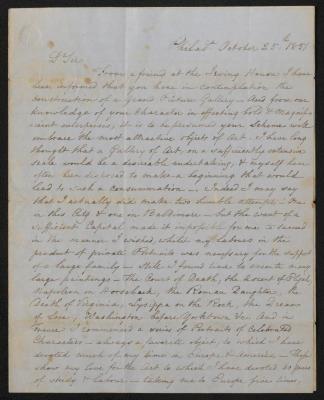 Philada October 25th 1851
Dr Sir,
From a friend at the Irving House I have
been informed that you have in contemplation the
construction of a Grand Picture Gallery — And from our
knowledge of your Character in effecting bold & magnifi-
cient enterprises, it is to be presumed your Scheme will
embrace the most attractive objects of Art — I have long
thought that a Gallery of Art, on a sufficiently extensive
scale would be a desirable undertaking, & myself have
often been disposed to make a beginning that would
lead to such a consummation — Indeed I may say
that I actually did make two humble attempts — One
in this City & one in Baltimore — but the want of a
sufficient Capital made it impossible for me to succeed
in the manner I wished, whilst my labours in the
product of private Portraits was necessary for the support
of a large family — Still I found time to execute many
large paintings — The Court of Death, the Ascent of Elijah
Napoleon on Horseback, the Roman Daughter, the
Death of Virginia, Lysippa on the Rock, the Dream
of Love, Washington before Yorktown &c And in
I commenced a series of Portraits of Celebrated
Characters — always a favorite object, to which I have
devoted much of my time in Europe & America — These
show my love for the Art to which I have devoted 60 years
of study & labour — taking me to Europe five times,